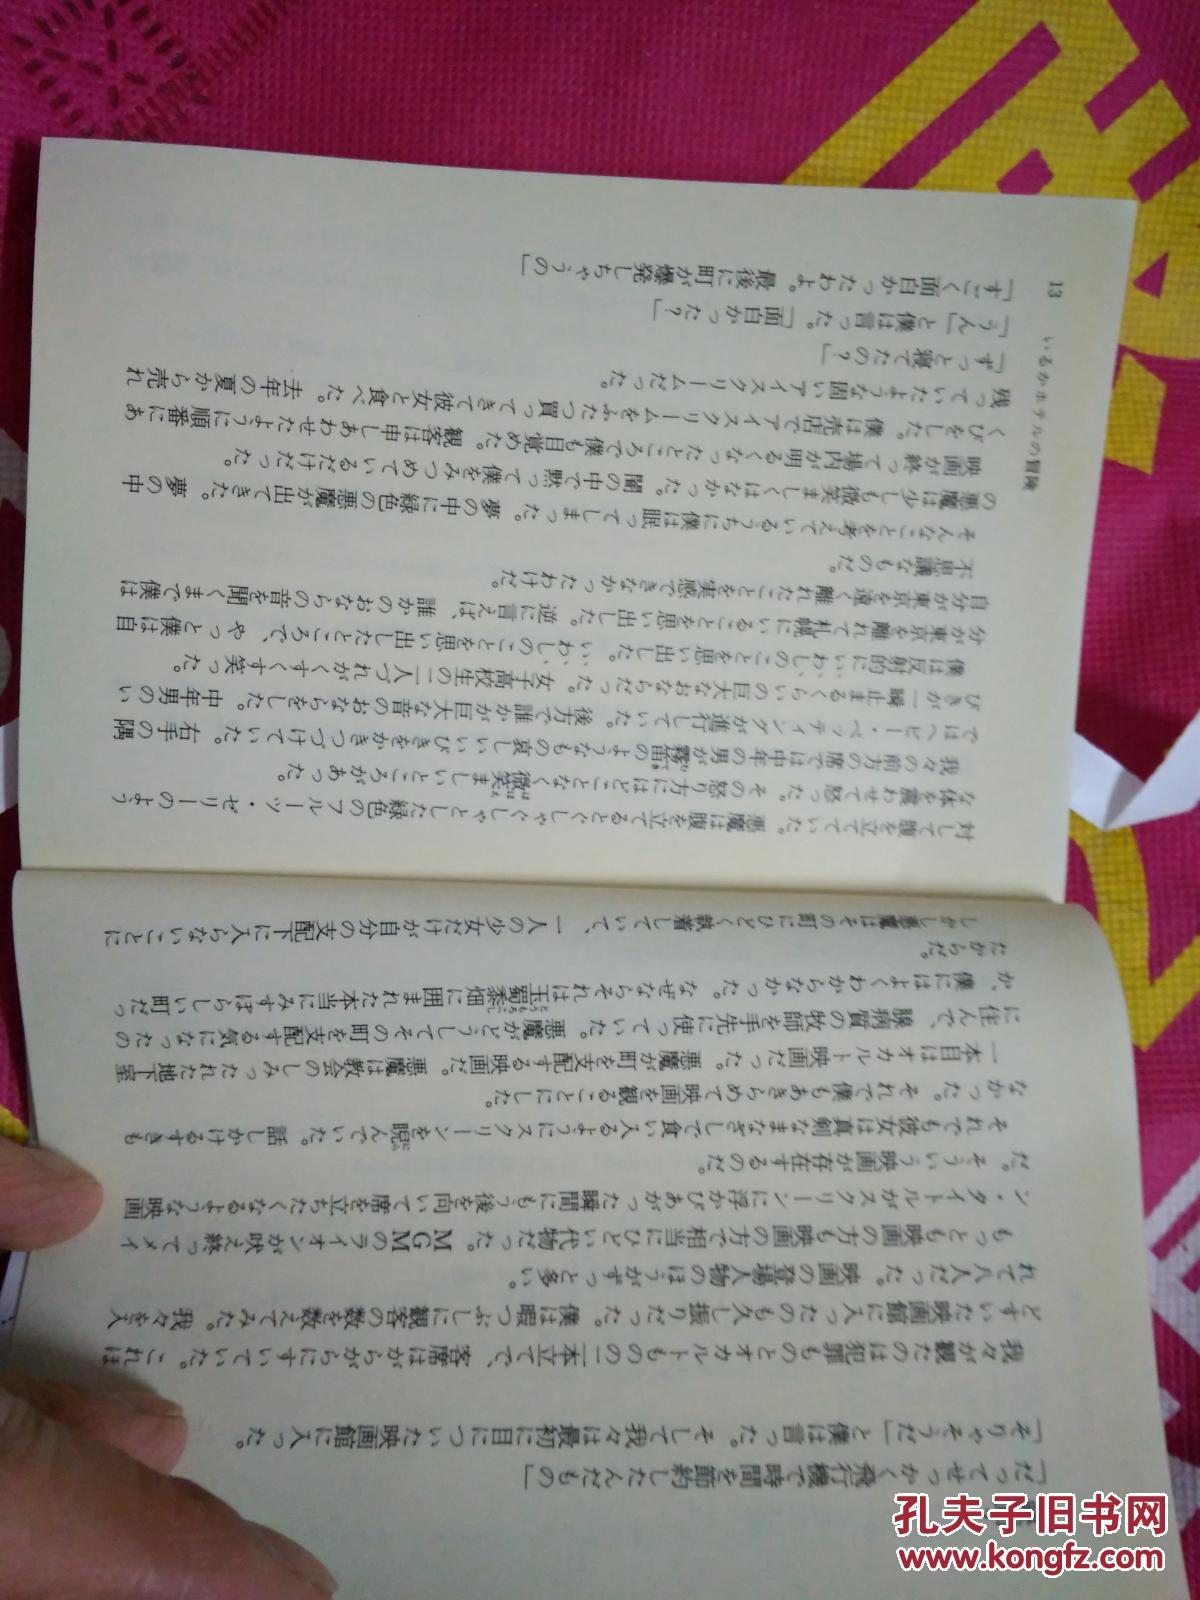 「だってせっかく飛行機で時間を節約したんだもの」
「そりゃそうだ」と僕は言った。そして我々は最初に目についた映画館に入った。
我々が観たのは犯罪ものとオカルトものの二本立てで、客席はがらがらにすいていた。これほ
どすいた映画館に入ったのも久し振りだった。僕は暇つぶしに観客の数を数えてみた。我々を入
れて八人だった。映画の登場人物のほうがずっと多い。
もっとも映画の方も映画の方で相当にひどい代物だった。MGMのライオンが吠え終ってメイ
ン・タイトルがスクリーンに浮かびあがった瞬間にもう後を向いて席を立ちたくなるような映画
だ。そういう映画が存在するのだ。
それでも彼女は真剣なまなざしで食い入るようにスクリーンを睨んでいた。話しかけるすきも
なかった。それで僕もあきらめて映画を観ることにした。
一本目はオカルト映画だった。悪魔が町を支配する映画だ。悪魔は教会のしみったれた地下室
に住んで、腺病質の牧師を手先に使っていた。悪魔がどうしてその町を支配する気になったの
か、僕にはよくわからなかった。なぜならそれは玉蜀黍畑に囲まれた本当にみすぼらしい町だっ
たからだ。
しかし悪魔はその町にひどく執着していて、一人の少女だけが自分の支配下に入らないことに
対して腹を立てていた。悪魔は腹を立てるとぐしゃぐしゃとした緑色のフルーツ・ゼリーのよう
な体を震わせて怒った。その怒り方にはどことなく微笑ましいところがあった。
我々の前方の席では中年の男が霧笛のようなもの哀しいいびきをかきつづけていた。右手の隅
ではヘビー・ペッティングが進行していた。後方で誰かが巨大な音のおならをした。中年男のい
びきが一瞬止まるくらいの巨大なおならだった。女子高校生の二人づれがくすくす笑った。
僕は反射的にいわしのことを思い出した。いわしのことを思い出したところで、やっと僕は自
分が東京を離れて札幌にいることを思い出した。逆に言えば、誰かのおならの音を聞くまで僕は
自分が東京を遠く離れたことを実感できなかったわけだ。
不思議なものだ。
そんなことを考えているうちに僕は眠ってしまった。夢の中に緑色の悪魔が出てきた。夢の中
の悪魔は少しも微笑ましくはなかった。闇の中で黙って僕をみつめているだけだった。
映画が終って場内が明るくなったところで僕も目覚めた。観客は申しあわせたように順番にあ
くびをした。僕は売店でアイスクリームをふたつ買ってきて彼女と食べた。去年の夏から売れ
残っていたような固いアイスクリームだった。
「ずっと寝てたの?」
「うん」と僕は言った。「面白かった?」
「すごく面白かったわよ。最後に町が爆発しちゃうの」
13 いるかホテルの冒険
孔夫子旧书网
www.kongfz.com